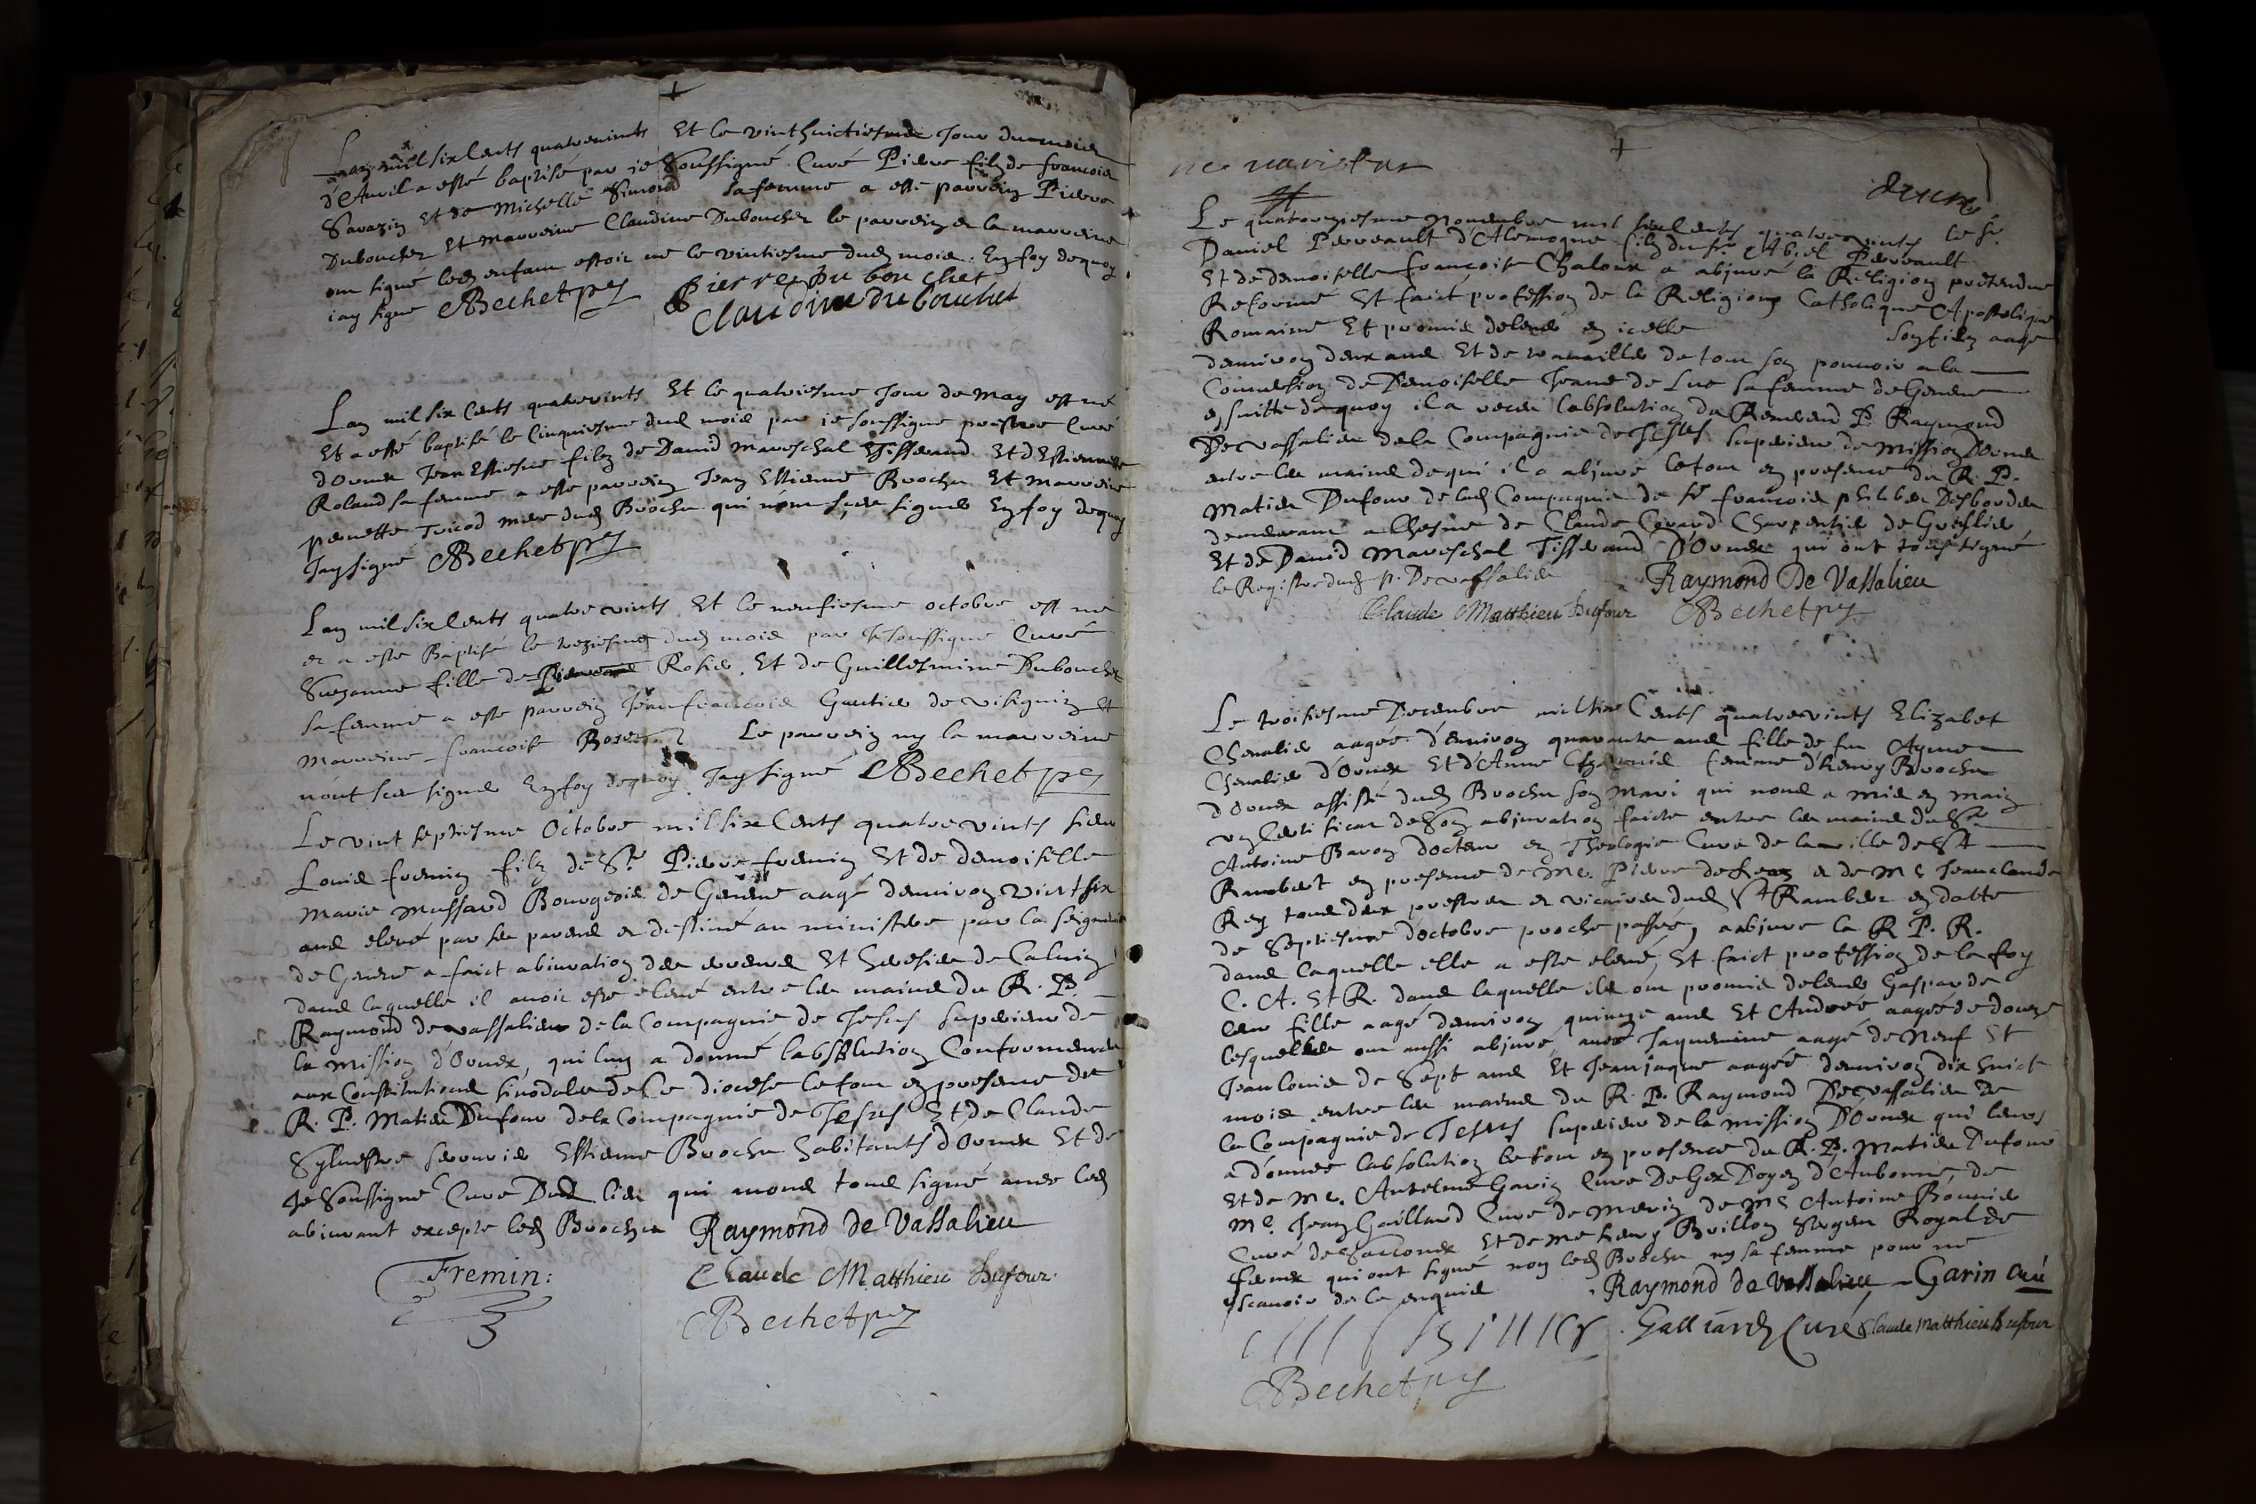 Lan mil six Cents quatrevints Et le vinthuictiesme Jour du mois
d'Auril a esté baptisé par ie Soussigné Curé Pierre filz de francois
Sarazin Et de Michelle Simond sa femme a esté parrein Pierre
Duboucher Et Marreine Claudine Duboucher le parrein et la marreine
ont signé led enfant estoit né le vintiesme dud mois. En foy dequoy
iay signé Bechet pr
Pierre Du bouchet
Claudine du bouchet
Lan mil six Cents quatrevints Et le quatriesme Jour de May est né
Et a esté baptisé le Cinquiesme dud mois par ie soussigné prestre Curé
d'Ornex Jean Estienne filz de David Mareschal Tisserand Et d'Estiennette
Roland sa femme a esté parrein Jean Estienne Brochu Et Marreine
pernette Tricod mere dud Brochu qui n'ont sceu signer En foy dequoy
Jay signé Bechet pr
Lan mil six Cents quatre vints Et le neufiesme octobre est né
et a esté Baptisé le treziesme dud mois par Je soussigné Curé
Suzanne fille de Rosie Et de Guillermine Duboucher
sa femme a esté parrein Jean francois Gautier de visignin Et
Marreine francoise Le parrein ny la marreine
n'ont sceu signer En foy dequoy Jay signé Bechet pr
Le vint septiesme Octobre mil six Cents quatre vints sieur
Louis fremin filz de Sr Pierre fremin Et de demoiselle
Marie Mussard Bourgeois de Geneve aagé denviron vint six
ans elevé par ses parens et destiné au ministere par la seigneurie
de Geneve a faict abiuration des erreurs Et heresies de Caluin
dans laquelle il auoit esté elevé entre les mains du R. P.
Raymond de vassalieu de la Compagnie de Jesus superieur de
la Mission d'Ornex, qui luy a donné labsolution Conformement
aux Constitutions sinodales de Ce diocese le tout en presence du
R. P. Matieu Dufour de la Compagnie de Jesus Et de Claude
Syluestre serrurier Estienne Brochu habitants d'Ornex Et de
Je Soussigné Curé Dud lieu qui auons tous signé auec led
abiurant excepté led Brochu Raymond de Vassalieu
Fremin: Claude Matthieu Dufour
Bechet pr
ne varietur
Le quatorziesme Nouembre mil six Cents quatrevints le Sr
Daniel Perreault d'Alemogne filz du Sr Abiel Perreault
Et de demoiselle francoise Chaloux a abjuré la Religion pretendue
Reformé Et faict profession de la Religion Catholique Apostolique
Romaine Et promis delever en icelle son filz aagé
denviron deux ans Et de trauailler de tout son pouuoir a la
Conuersion de Demoiselle Jeane de Luc sa femme de Geneve
en suitte de quoy il a receu labsolution du Reuerend P. Raymond
De vassalieu de la Compagnie de Jesus Superieur de Mission D'Ornex
entre les mains de qui il a abjuré le tout en presence du R. P.
Matieu Dufour de lad Compagnie de Sr francois philiber Desbordes
demeurant a Chesne de Claude Couard Charpentier de Greslier
Et de David Mareschal Tisserand D'Ornex qui ont tous signé
le Registre dud p. De vassalieu Raymond De Vassalieu
Claude Matthieu Dufour Bechet pr
Le troisiesme Decembre mil six Cents quatrevints Elizabet
Cheualier aagée d'enuiron quarante ans fille de feu Ayme
Cheualier d'Ornex Et d'Anne femme d'henry Brochu
d'Ornex assisté dud Brochu son Mari qui nous a mis en main
un Certificat de Son abjuration faicte entre les mains du Sr
Antoine Baron docteur en Theologie Curé de la ville de St
Rambert en presence de Me. Pierre de et de Me Jeanclaude
Rey tous deux prestres et vicaires dud St Rambert en datte
de Septiesme d'octobre proche passé, a abjuré la R. P. R.
dans laquelle elle a esté elevé, Et faict profession de la foy
C. A. Et R. dans laquelle ils ont promis delever Gasparde
leur fille aagé denviron quinze ans Et Andrée aagée de douze
lesquelles ont aussi abjuré, auec Jaquemine aagé de Neuf Et
Jean louis de Sept ans Et Jeanjaques aagée denviron dix huict
mois entre les mains du R. P. Raymond De vassalieu de
la Compagnie de Jesus superieur de la mission D'Ornex qui leurs
a donnée labsolution le tout en presence du R. P. Matieu Dufour
Et de Me. Antelme Garin Curé De Gex Doyen d'Aubonne de
Me Jean Gaillard Curé de Meyrin de Me Antoine
Curé de Sacconex Et de Me henry Brillon Sergen Royal de
fernex qui ont signé non led Brochu ny sa femme pour ne
scauoir de Ce enquis Raymond de Vassalieu Garin curé
Galliard Curé Claude Matthieu Dufour
Bechet pr